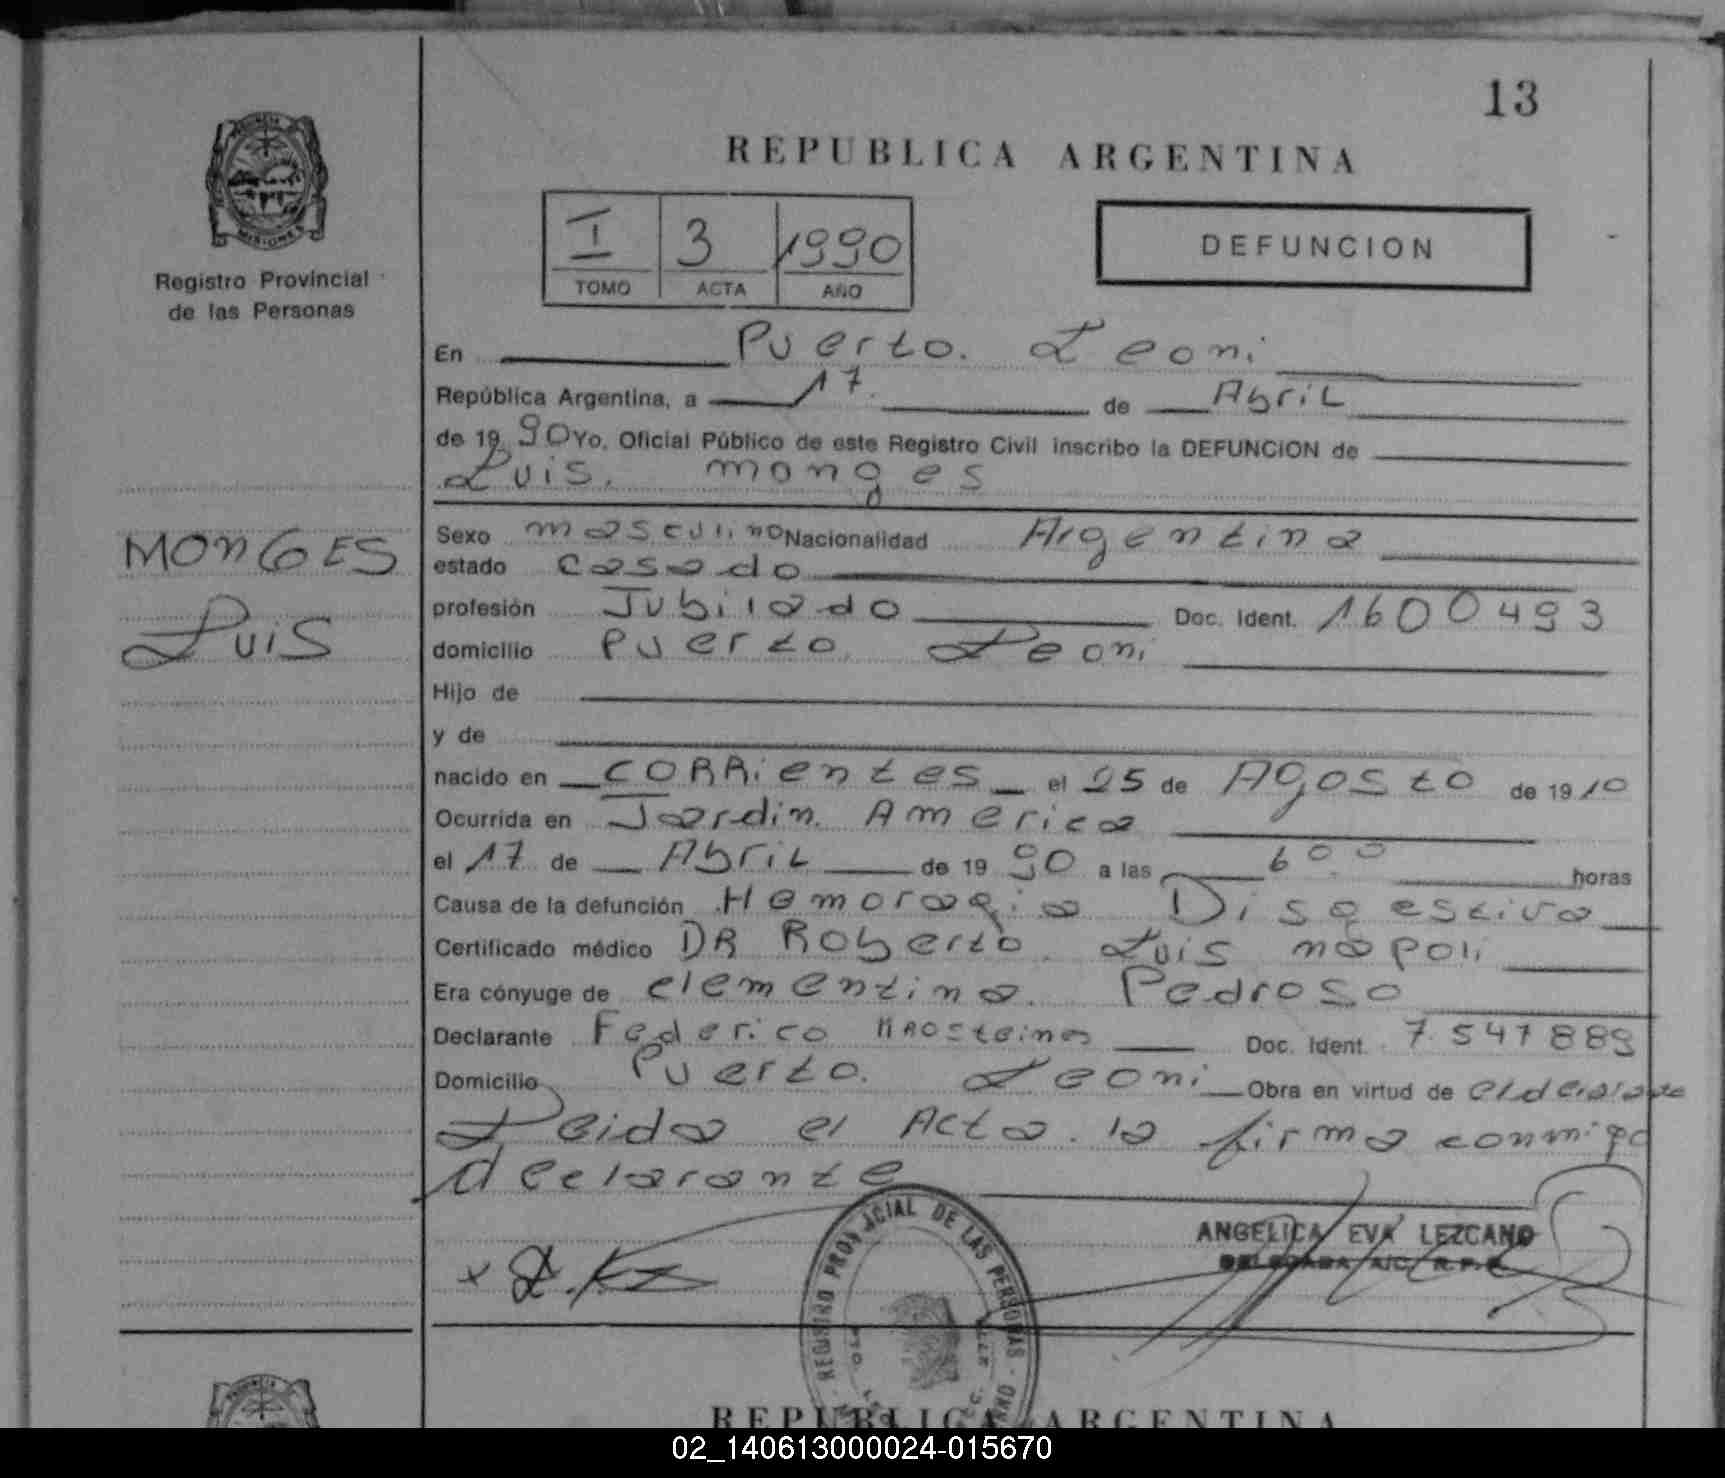 13
REPUBLICA ARGENTINA
PROVINCIA
MISIONES
Registro Provincial
de las Personas
I 3 1990
TOMO ACTA AÑO
DEFUNCION
En Puerto. Leoni
República Argentina, a 17. de Abril
de 19 90 Yo, Oficial Público de este Registro Civil inscribo la DEFUNCION de
Luis. monges
MONGES
Luis
Sexo masculino Nacionalidad Argentina
estado casado
profesión Jubilado Doc. Ident. 1600493
domicilio Puerto. Leoni
Hijo de
y de
nacido en CORRientes el 25 de AgOSTO de 19 10
Ocurrida en Jardin. America
el 17 de Abril de 19 90 a las 6 00 horas
Causa de la defunción Hemoragia Disgestiva
Certificado médico DR Roberto. Luis napoli
Era cónyuge de clementina. Pedroso
Declarante Federico Doc. Ident. 7.547889
Domicilio Puerto. Leoni Obra en virtud de
Leida el Acta. la firma conmigo
declarante
ANGELICA EVA LEZCANO
DELEGADA A/C. R.P.P.
REGISTRO PROVINCIAL DE LAS PERSONAS
REPUBLICA ARGENTINA
02_140613000024-015670